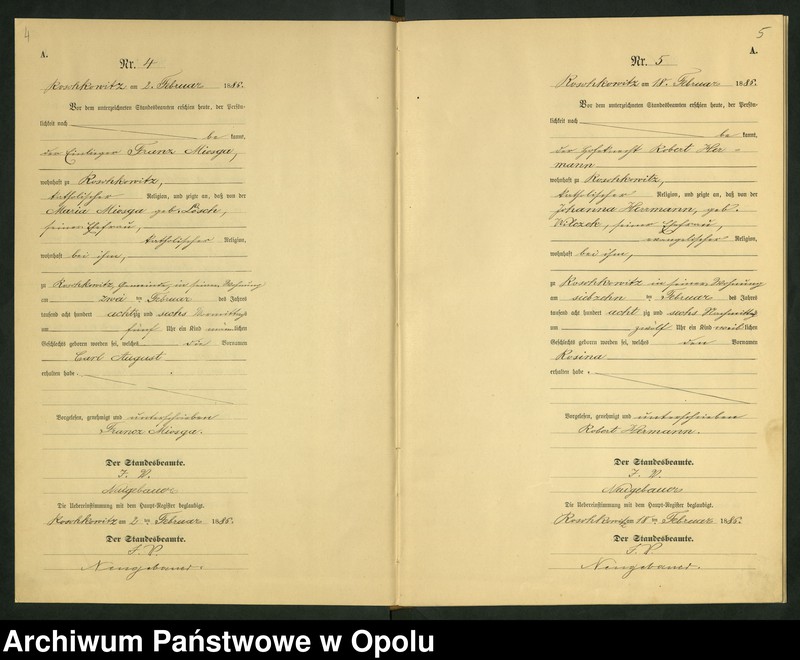 4
A.
Nr. 4
Roschkowitz am 2. Februar 1886.
Vor dem unterzeichneten Standesbeamten erschien heute, der Persön-
lichkeit nach
be kannt,
der Einlieger Franz Miosga,
wohnhaft zu Roschkowitz,
katholischer Religion, und zeigte an, daß von der
Maria Miosga geb. Lösch,
seiner Ehefrau,
katholischer Religion,
wohnhaft bei ihm,
zu Roschkowitz, Gemeinde, in seiner Wohnung
am zwei ten Februar des Jahres
tausend acht hundert acht zig und sechs Vormittags
um fünf Uhr ein Kind männlichen
Geschlechts geboren worden sei, welches die Vornamen
Carl August
erhalten habe.
Vorgelesen, genehmigt und unterschrieben
Francz Miosga.
Der Standesbeamte.
J. V.
Neugebauer
Die Uebereinstimmung mit dem Haupt-Register beglaubigt.
Roschkowitz am 2 ten Februar 1886.
Der Standesbeamte.
J. V.
Neugebauer.
5
A.
Nr. 5
Roschkowitz am 18. Februar 1886.
Vor dem unterzeichneten Standesbeamten erschien heute, der Persön-
lichkeit nach
be kannt,
der Hofeknecht Robert Her-
mann
wohnhaft zu Roschkowitz,
katholischer Religion, und zeigte an, daß von der
Johanna Hermann, geb.
Wilczek, seiner Ehefrau,
evangelischer Religion,
wohnhaft bei ihm,
zu Roschkowitz in seiner Wohnung
am siebzehn ten Februar des Jahres
tausend acht hundert acht zig und sechs Nachmittags
um zwölf Uhr ein Kind weiblichen
Geschlechts geboren worden sei, welches den Vornamen
Rosina
erhalten habe.
Vorgelesen, genehmigt und unterschrieben
Robert Hermann.
Der Standesbeamte.
J. V.
Neugebauer
Die Uebereinstimmung mit dem Haupt-Register beglaubigt.
Roschkowitz am 18 ten Februar 1886.
Der Standesbeamte.
J. V.
Neugebauer.
Archiwum Państwowe w Opolu